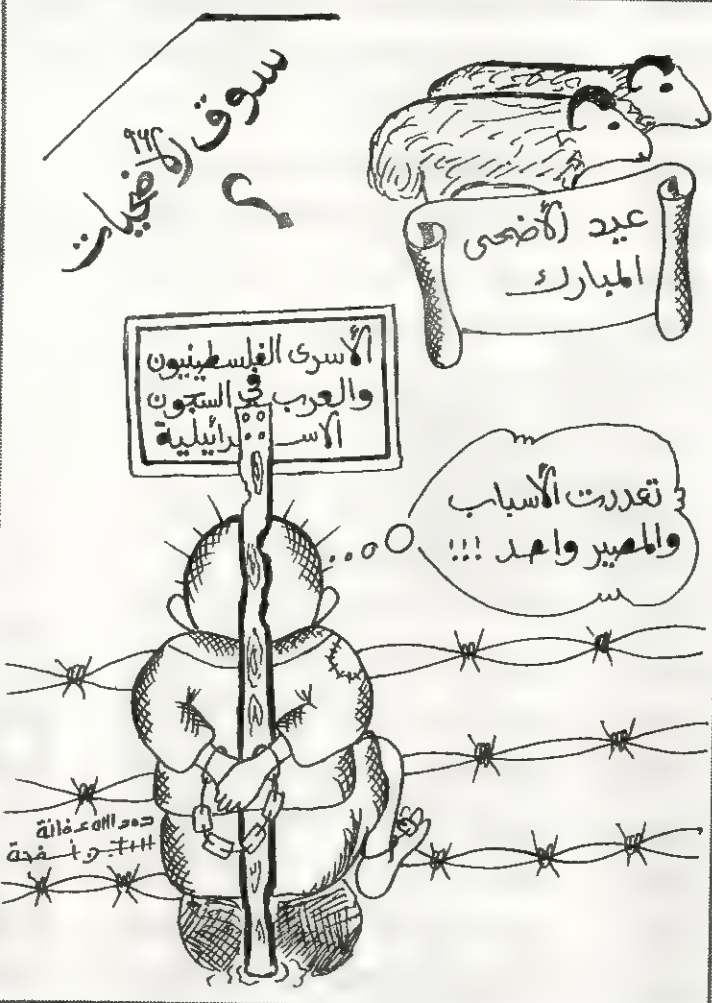 سوق الأضحيات
؟
عيد الأضحى
المبارك
الأسرى الفلسطينيون
والعرب في السجون
الاسرائيلية
تعددت الأسباب
والمصير واحد !!!